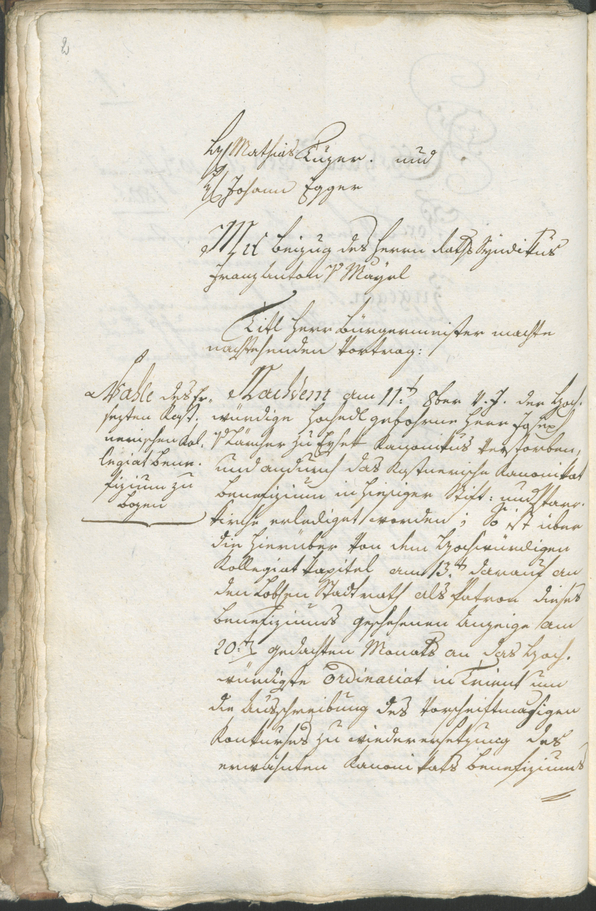 2
Hr Mathias Kuzer. und
Hr Johann Egger
Mit beizug des Herrn Raths Syndikus
Franz Anton v Mayrl
Titl Herr Bürgermeister machte
nachstehenden Vortrag:
Wahle des
Kol-
legiat Bene-
fizium zu
bozen
Nachdem am 11t 8ber v. J. der Hoch-
würdige hochedl gebohrne Herr Josef
Kanonikus verstorben,
und andurch das Kanonikat
Benefizium in hiesiger Stift: und Pfarr-
kirche erlediget worden; So ist über
die hierüber von dem Hochwürdigen
Kollegiat Kapitel am 13t darauf an
den Löblen Stadtrath als Patron dieses
Benefiziums geschehenen Anzeige am
20t gedachten Monats an das Hoch-
würdigste Ordinariat in Trient um
die Ausschreibung des vorschriftmäsigen
Konkurses zu wiederersetzung des
erwähnten Kanonikats Benefiziums